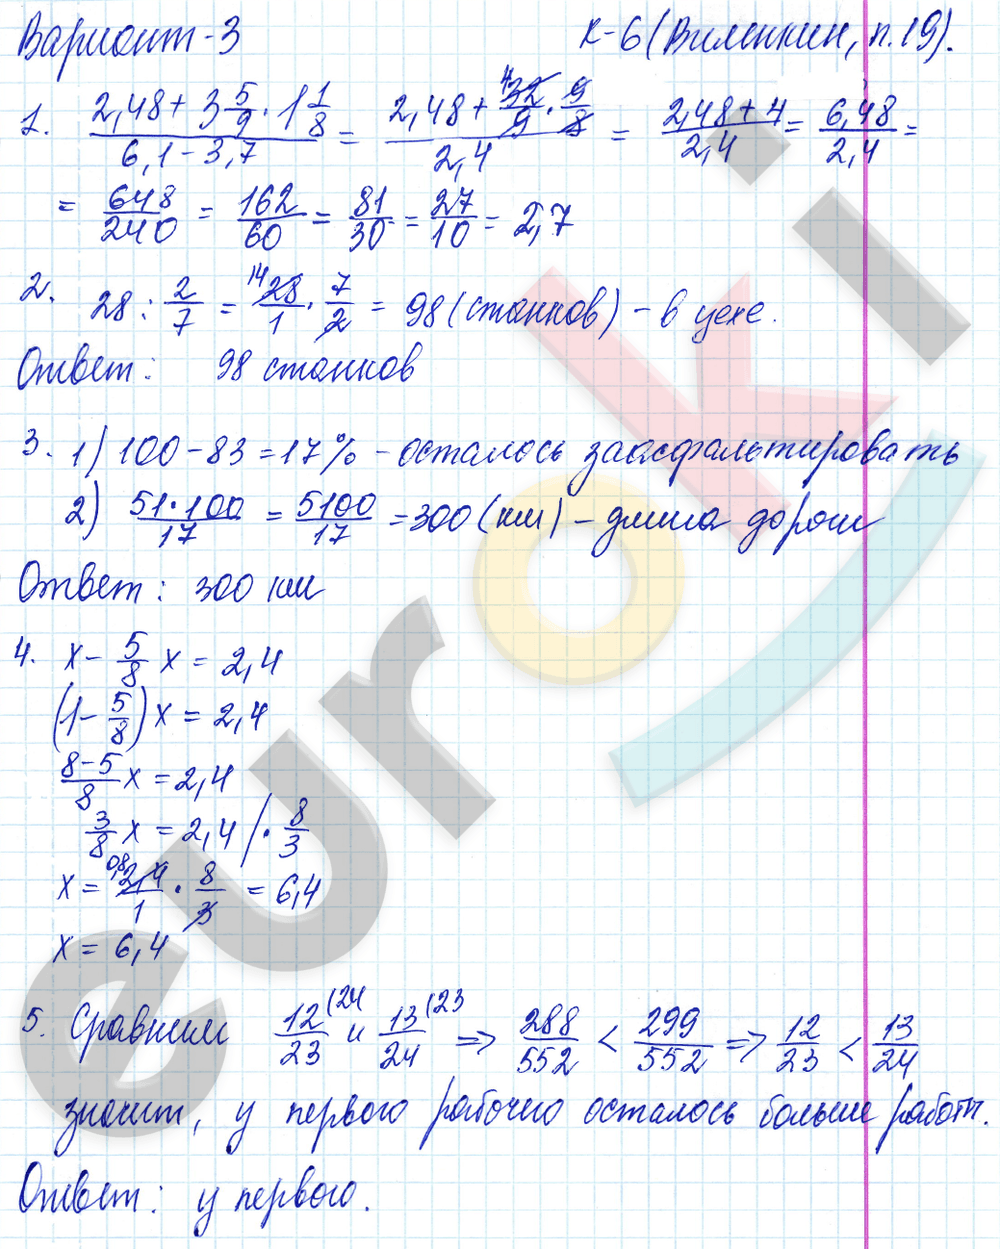 Вариант-3 К-6 (Виленкин, п.19).
1. (2,48 + 3 5/9 · 1 1/8)/(6,1 - 3,7) = (2,48 + 32/9 · 9/8)/2,4 = (2,48 + 4)/2,4 = 6,48/2,4 =
= 648/240 = 162/60 = 81/30 = 27/10 = 2,7
2. 28 : 2/7 = 14 28/1 · 7/2 = 98 (станков) - в цехе.
Ответ: 98 станков
3. 1) 100 - 83 = 17% - осталось заасфальтировать
2) 51·100/17 = 5100/17 = 300 (км) - длина дороги
Ответ: 300 км
4. x - 5/8 x = 2,4
(1 - 5/8) x = 2,4
(8-5)/8 x = 2,4
3/8 x = 2,4 / · 8/3
x = 0,8 2,4/1 · 8/3 = 6,4
x = 6,4
5. Сравним 12/23 (24 и 13/24 (23 => 288/552 < 299/552 => 12/23 < 13/24
значит, у первого рабочего осталось больше работы.
Ответ: у первого.
euroki